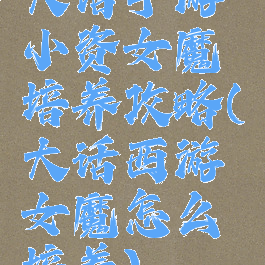 大话手游
小资女魔
培养攻略(
大话西游
女魔怎么
培养)